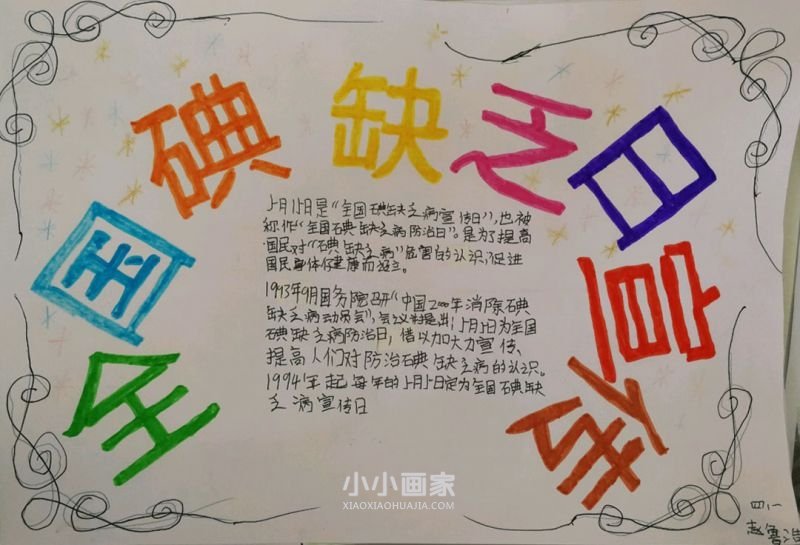 全国碘缺乏日宣传
5月15日是“全国碘缺乏病宣传日”，也被
称作“全国碘缺乏病防治日”。是为了提高
国民对“碘缺乏病”危害的认识，促进
国民身体健康而设立。
1993年9月国务院召研“中国2000年消除碘
缺乏病动员会”，会议提出，5月5日为全国
碘缺乏病防治日，借以加大力宣传、
提高人们对防治碘缺乏病的认识。
1994年起每年的5月5日定为全国碘缺
乏病宣传日
小小画家
XIAOXIAOHUAJIA.COM
四、一
赵